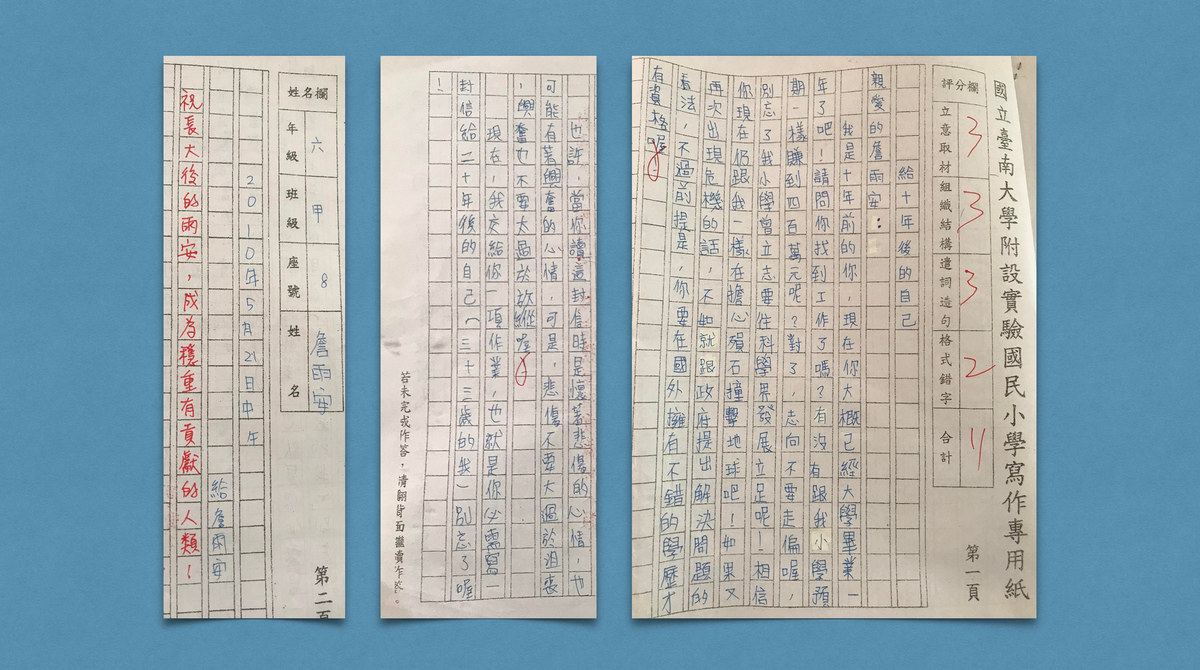 國立臺南大學附設實驗國民小學寫作專用紙
第一頁
評分欄
立意取材 3
組織結構 3
遣詞造句 3
格式錯字 2
合計 11
給十年後的自己
親愛的詹雨安：
我是十年前的你，現在你大概已經大學畢業一
年了吧！請問你找到工作了嗎？有沒有跟我小學預
期一樣賺到四百萬元呢？對了，志向不要走偏喔，
別忘了我小學曾立志要往科學界發展立足呢！相信
你現在仍跟我一樣在擔心殞石撞擊地球吧！如果又
再次出現危機的話，不如就跟政府提出解決問題的
看法，不過前提是，你要在國外擁有不錯的學歷才
有資格喔。
也許，當你讀這封信時是懷著悲傷的心情，也
可能有著興奮的心情，可是，悲傷不要太過於沮喪
，興奮也不要太過於放縱喔。
現在，我交給你一項作業，也就是你必需寫一
封信給二十年後的自己（三十三歲的我）別忘了喔
！
若未完成作答，請翻背面繼續作答。
第二頁
姓名欄
六年級
甲班級
8座號
詹雨安姓名
2010年5月21日中午
給詹雨安
祝長大後的雨安，成為穩重有貢獻的人類！